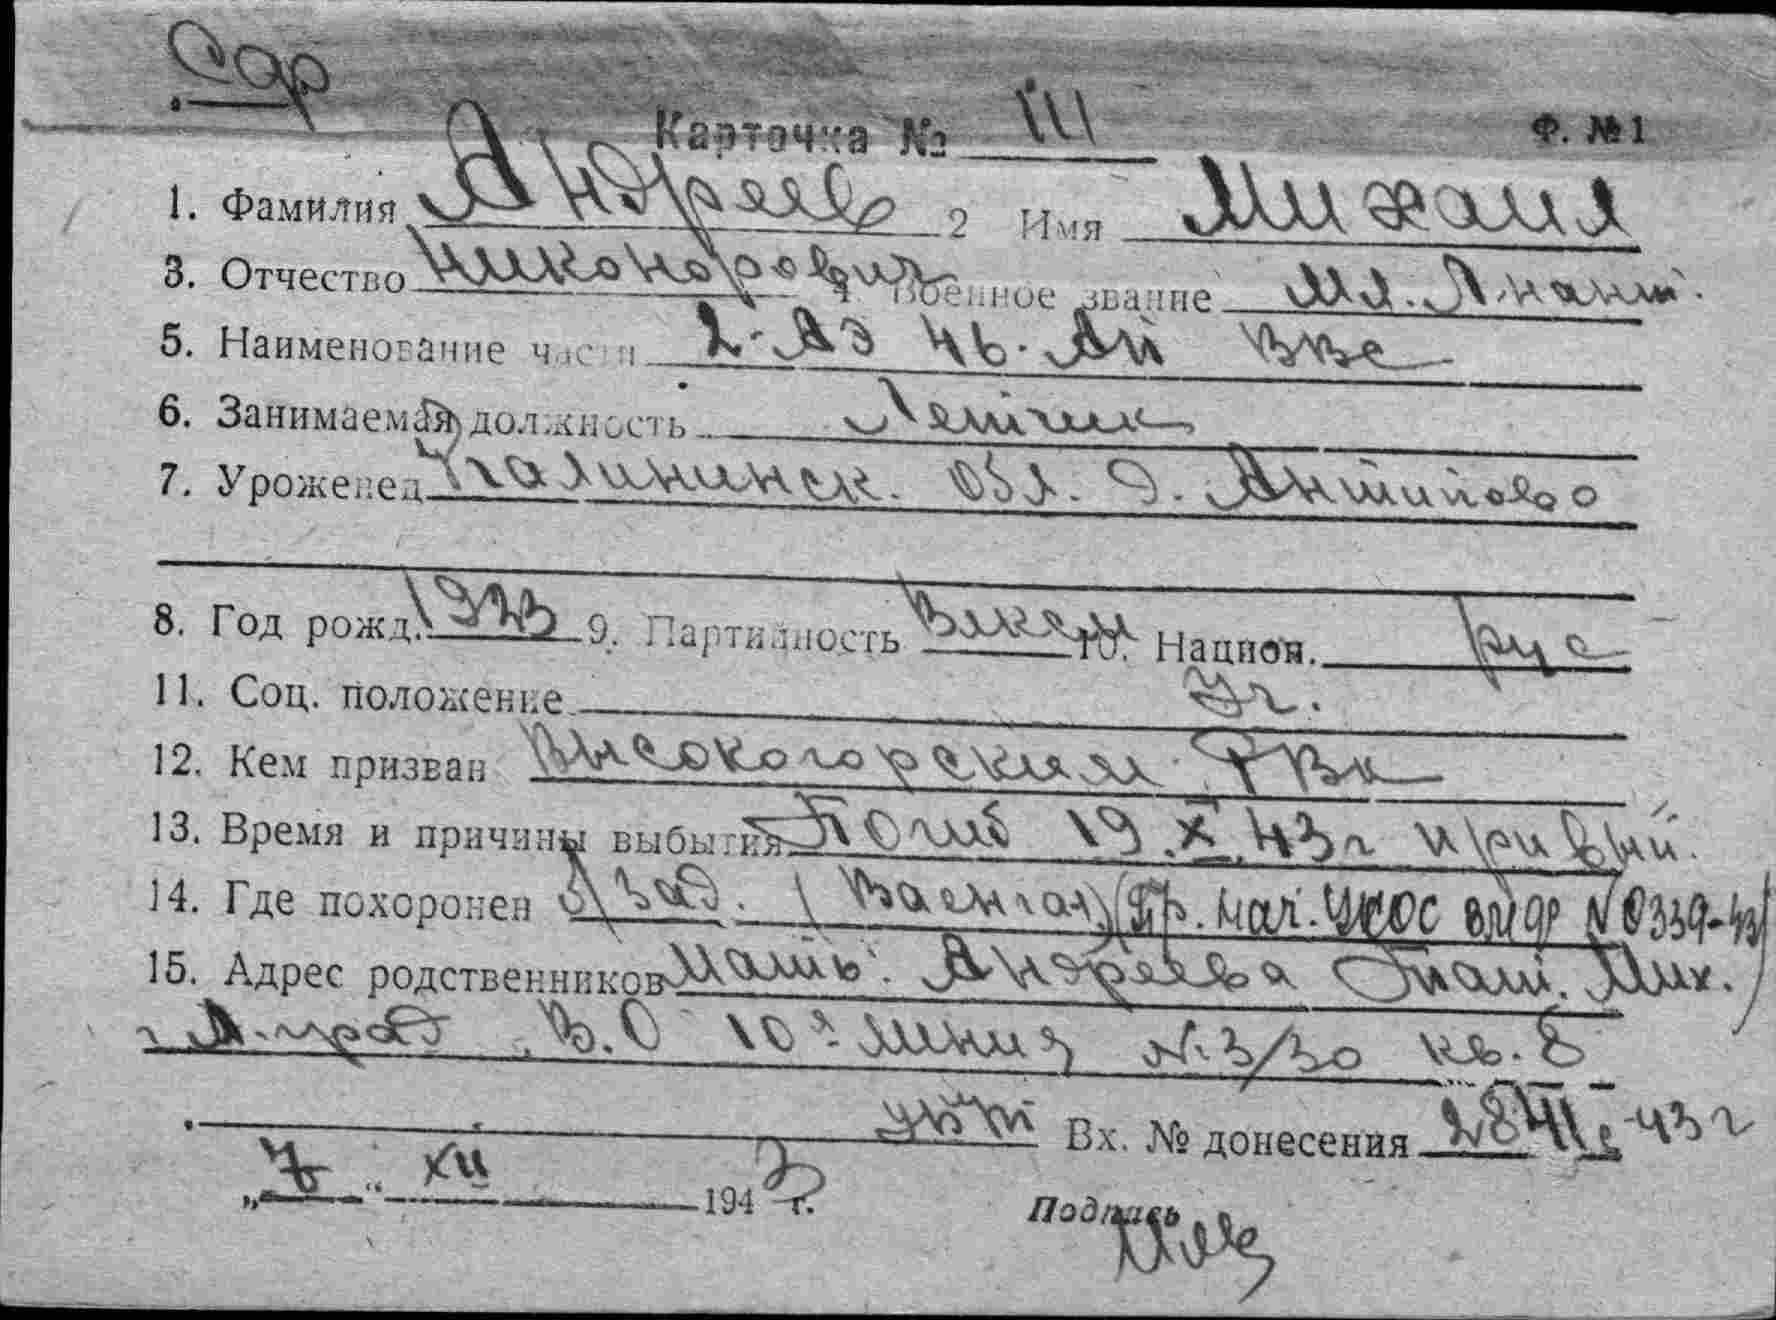 Сар
Карточка № 111 Ф. № 1
1. Фамилия Андреев 2 Имя Михаил
3. Отчество Никонорович 4 Военное звание Мл. Л-нант.
5. Наименование части 2-АЭ 46-АП ВВС
6. Занимаемая должность Летчик
7. Уроженец Калининск. обл. д. Антипово
8. Год рожд. 1923 9. Партийность ВЛКСМ 10. Национ. рус
11. Соц. положение Уч.
12. Кем призван Высокогорским РВК
13. Время и причины выбытия Погиб 19.X.43г при вып.
14. Где похоронен б/зад. (Ваенга) (Пр. нач. УК ЮС вмф № 0339-43)
15. Адрес родственников Мать: Андреева Мих.
г Л-град, В.О 10я линия № 3/30 кв. 8
Вх. № донесения 43 г
„ “ XII 1943 г.
Подпись